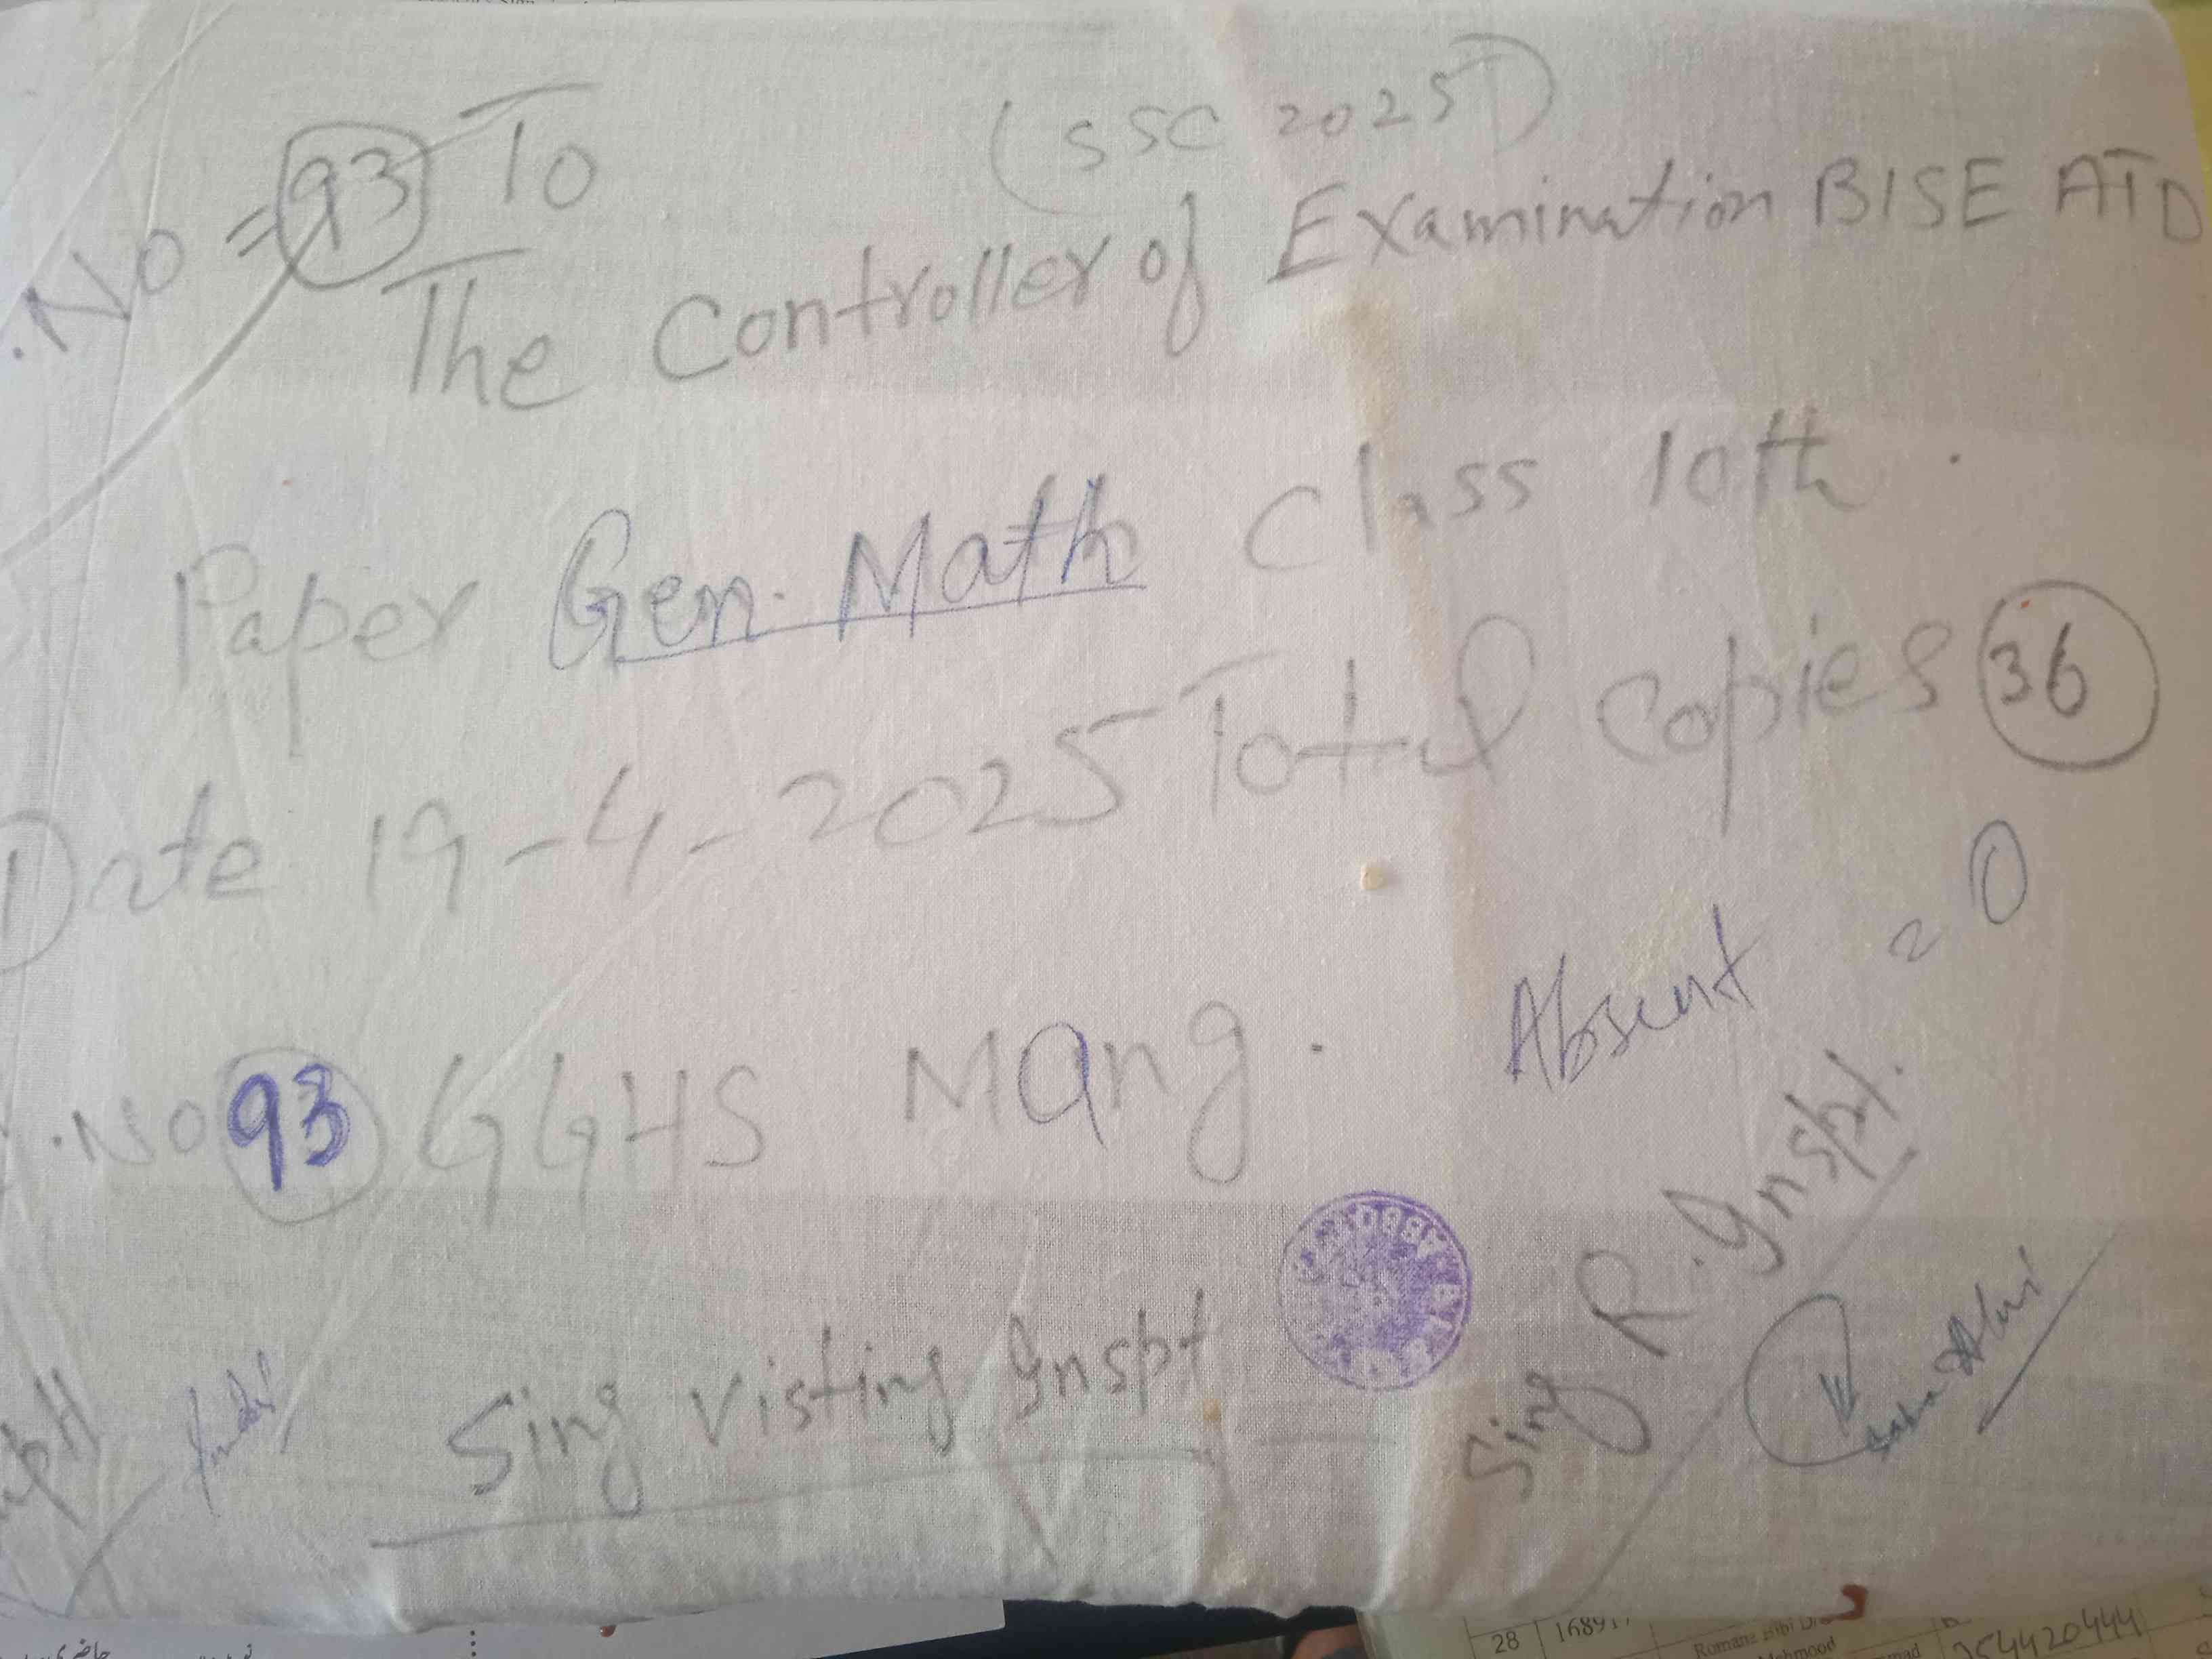 (SSC 2025)
.No = 93 To
The Controller of Examination BISE ATD
Paper Gen. Math Class 10th .
Date 19-4-2025 Total Copies 36
Absent = 0
.No 93 GGHS Mang .
Sing Visting Inspt
Sing R. Inspt.
28 16891
Romana Bibi
Mehmood
354420444